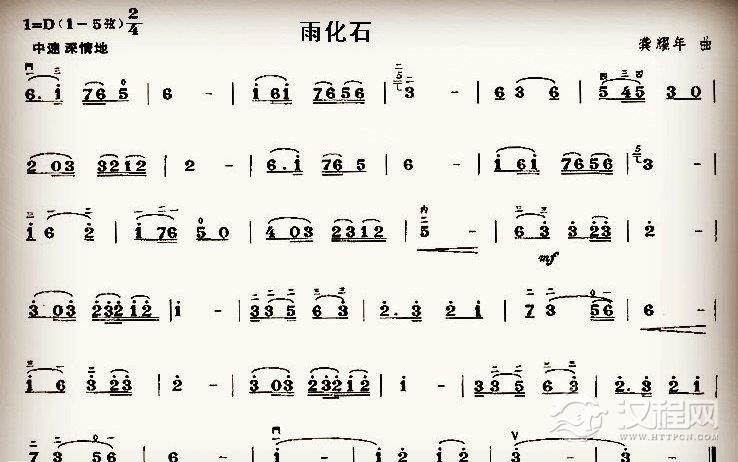 雨化石
1=D(1-5弦) 2/4
中速 深情地
龚耀年 曲
6. i 7 6 5 | 6 - | i 6 i 7 6 5 6 | 3 - | 6 3 6 | 5 4 5 3 0 |
2 0 3 3 2 1 2 | 2 - | 6. i 7 6 5 | 6 - | i 6 i 7 6 5 6 | 3 - |
i 6 2 | i 7 6 5 0 | 4 0 3 2 3 1 2 | 5 - | 6 3 3 2 3 | 2 - |
mf
3 0 3 2 3 2 i 2 | i - | 3 3 5 6 3 | 2. 3 2 i | 7 3 5 6 | 6 - |
i 6 3 2 3 | 2 - | 3 0 3 2 3 2 i 2 | i - | 3 3 5 6 3 | 2. 3 2 i |
7 3 5 6 | 6 - | i - | i 2 i 2 | 3 - | 3 -
汉程网
WWW.HTTPCN.COM